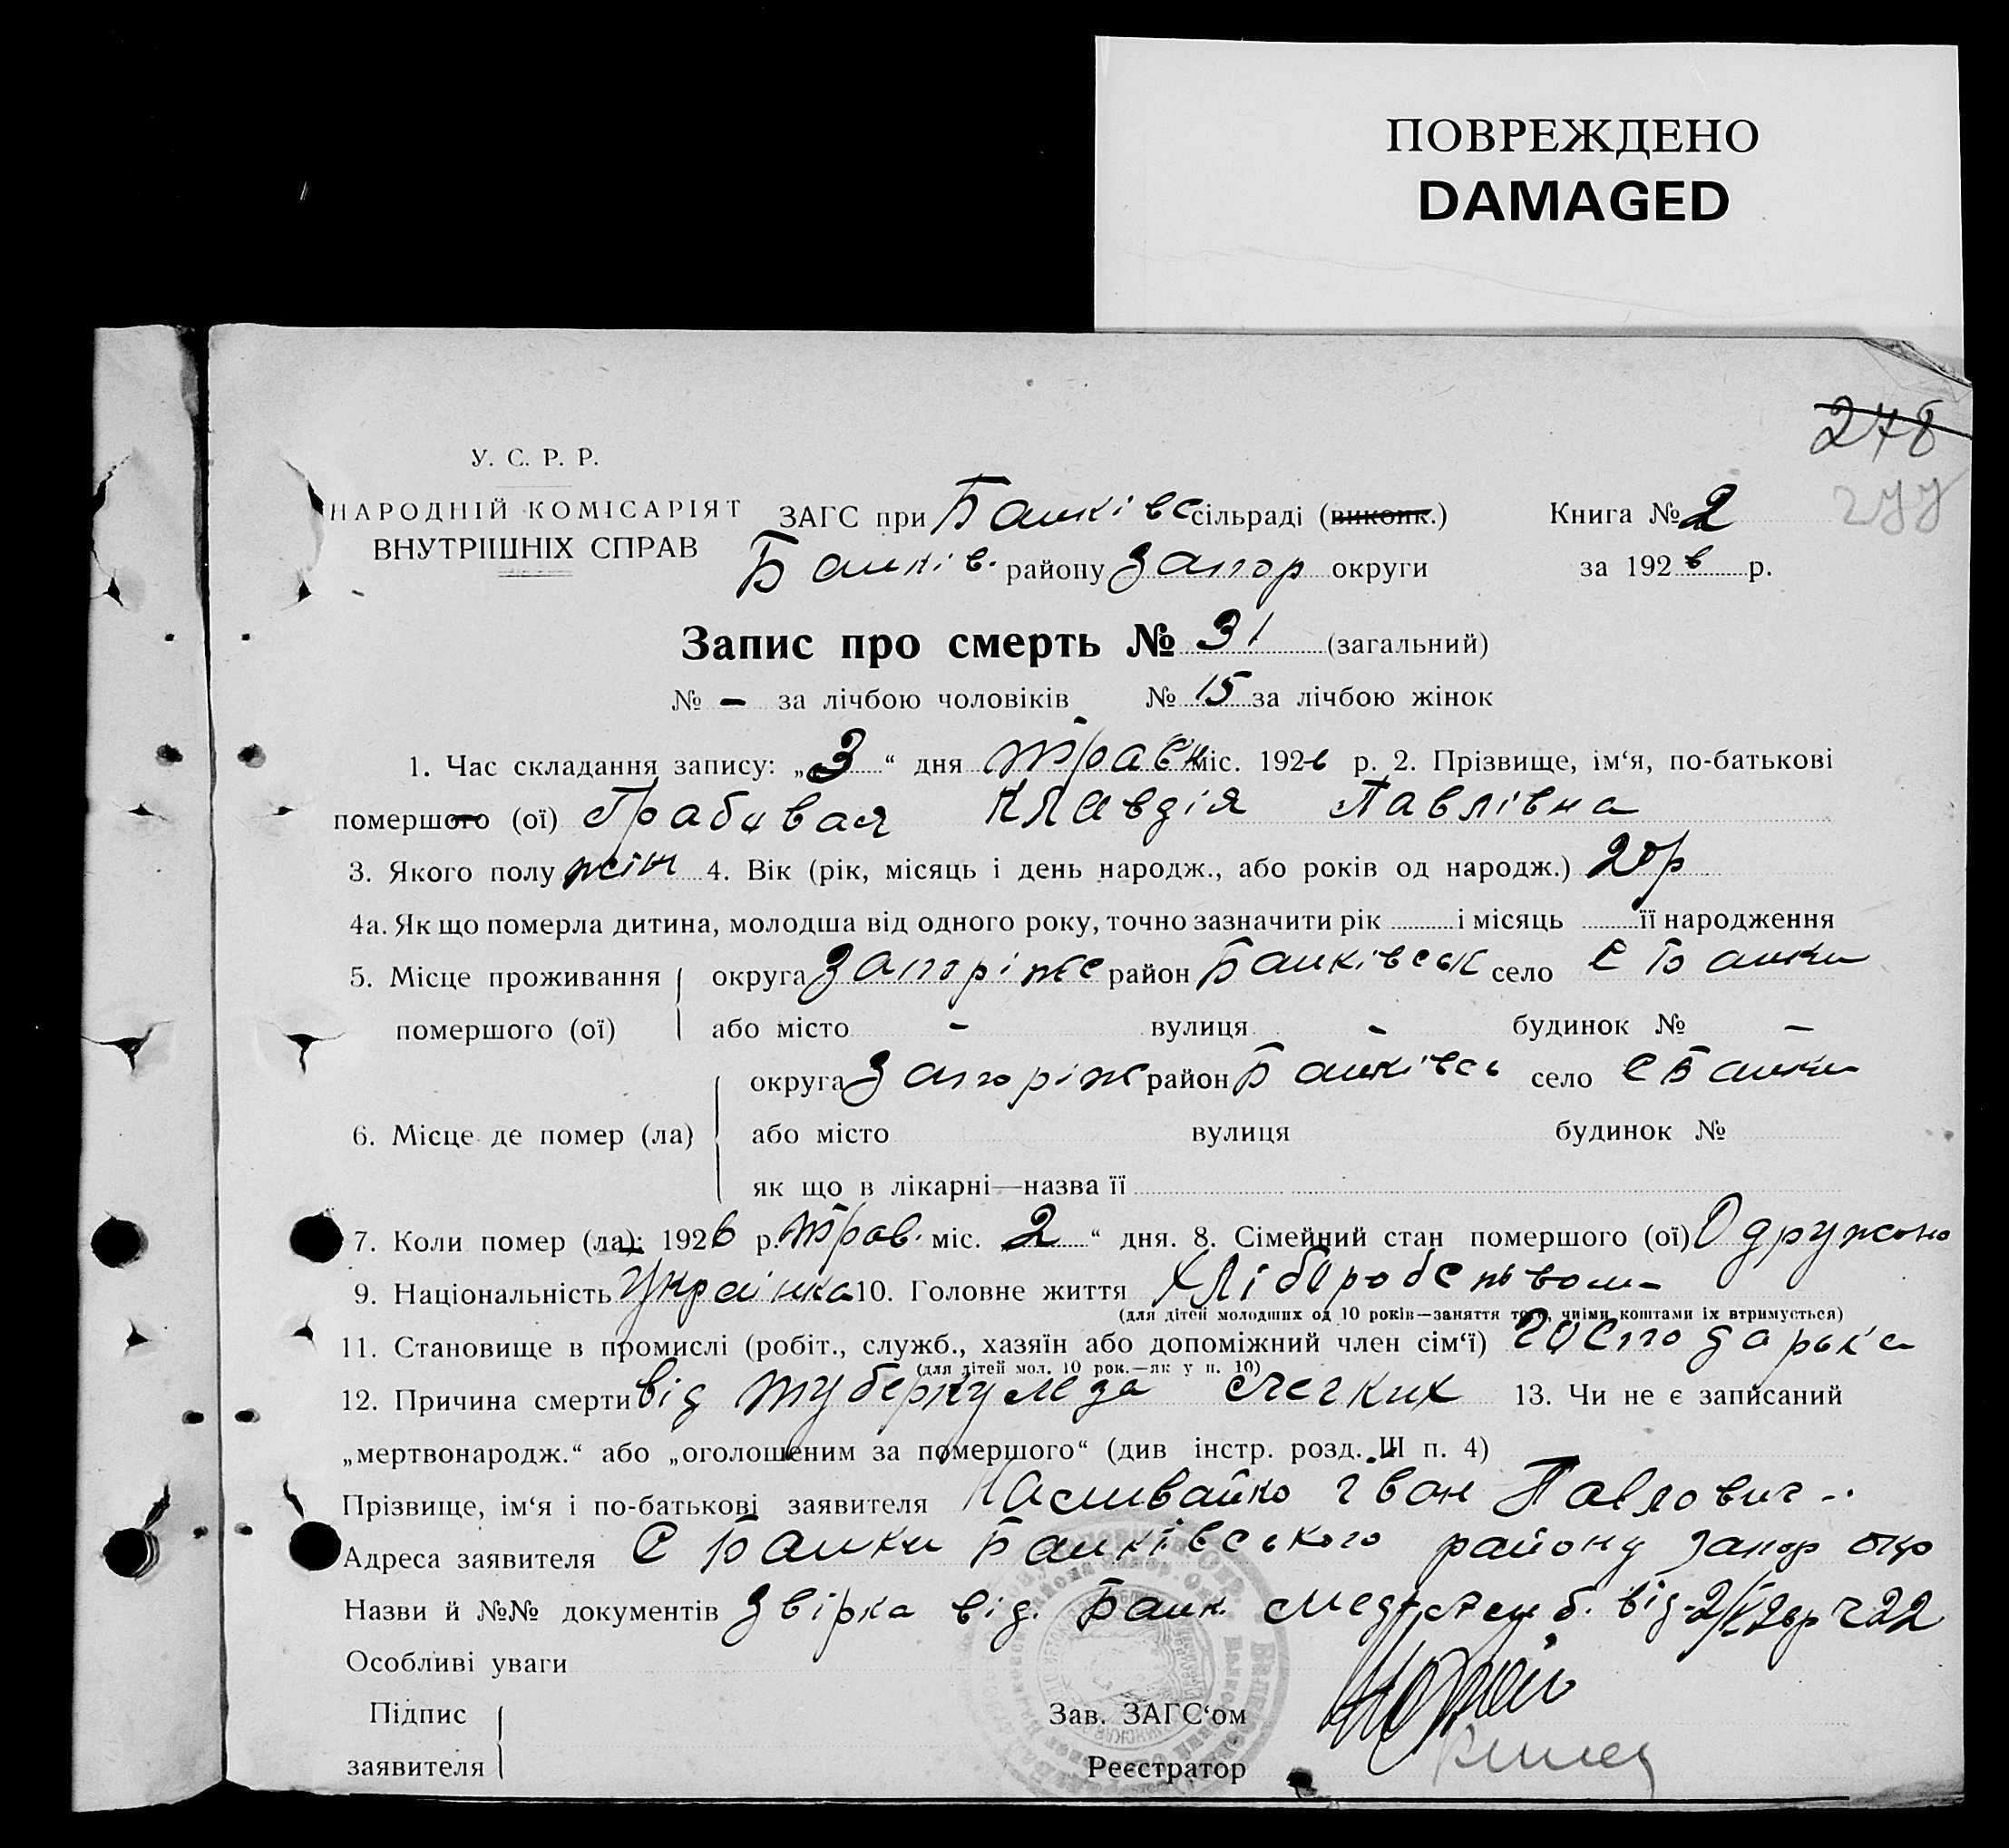 ПОВРЕЖДЕНО
DAMAGED
278
277
У. С. Р. Р.
НАРОДНІЙ КОМІСАРІЯТ
ВНУТРІШНІХ СПРАВ
ЗАГС при Банківс сільраді (виконк.) Книга № 2
Банків. району Запор округи за 1926 р.
Запис про смерть № 31 (загальний)
№ - за лічбою чоловіків № 15 за лічбою жінок
1. Час складання запису: „3“ дня Травн міс. 1926 р. 2. Прізвище, ім‘я, по-батькові
помершого (ої) Грабовая Клавдія Павлівна
3. Якого полу жін 4. Вік (рік, місяць і день народж., або років од народж.) 20р
4а. Як що померла дитина, молодша від одного року, точно зазначити рік і місяць її народження
5. Місце проживання округа Запоріже район Банківськ село С Банки
помершого (ої) або місто - вулиця - будинок № -
округа Запоріж район Банківсь село С Банки
6. Місце де помер (ла) або місто вулиця будинок №
як що в лікарні—назва її
7. Коли помер (ла): 1926 р. Трав. міс. 2 “ дня. 8. Сімейний стан помершого (ої) Одружона
9. Національність Українка 10. Головне життя Хліборобством
(для дітей молодших од 10 років—заняття того, чиїми коштами їх втримується)
11. Становище в промислі (робіт., служб., хазяїн або допоміжний член сім‘ї) господарька
(для дітей мол. 10 рок.—як у п. 10)
12. Причина смерти від туберкулеза легких 13. Чи не є записаний
„мертвонародж.“ або „оголошеним за помершого“ (див інстр. розд. III п. 4)
Прізвище, ім‘я і по-батькові заявителя Іван Павлович
Адреса заявителя С Банки Банківського району Запор окр
Назви й №№ документів Звірка від. Банк. від 2/V 26р 22
Особливі уваги
Підпис Зав. ЗАГС‘ом
заявителя Реєстратор